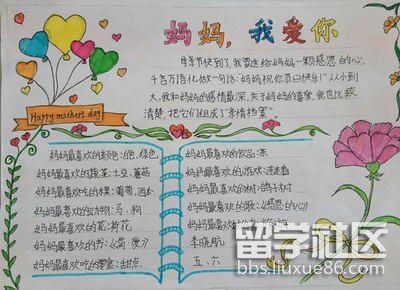 妈妈,我爱你
母亲节快到了,我要送给妈妈一颗感恩的心,
千言万语化做一句话:"妈妈祝你节日快乐!"从小到
大,我和妈妈的感情最深,关于妈妈的喜爱,我也比较
清楚,把它们组成了"亲情档案"
Happy mothers day
妈妈最喜欢的颜色:白色,绿色
妈妈最喜欢的蔬菜:土豆、蘑菇
妈妈最喜欢吃的水果:葡萄、西瓜
妈妈最喜欢的动物:马、狗
妈妈最喜欢的花:荷花
妈妈最喜欢的书:《简 爱》
妈妈最喜欢吃的零食:甜点
妈妈最喜欢的饮品:茶
妈妈最喜欢的游戏:连连看
妈妈最喜欢的树:鸽子树
妈妈最喜欢的歌:《感恩的心》
李晓航
五、六
留学社区
bbs.liuxue86.com